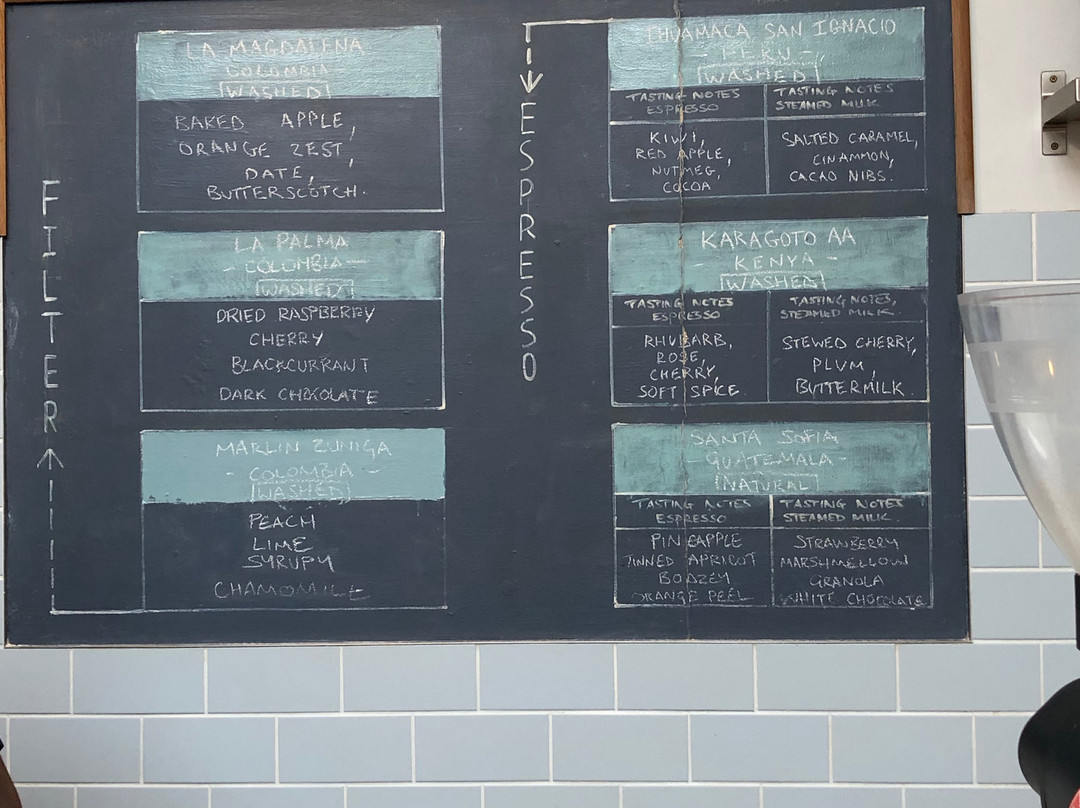 FILTER
LA MAGDALENA
COLOMBIA
WASHED
BAKED APPLE,
ORANGE ZEST,
DATE,
BUTTERSCOTCH.
LA PALMA
- COLOMBIA -
WASHED
DRIED RASPBERRY
CHERRY
BLACKCURRANT
DARK CHOCOLATE
MARLIN ZUNIGA
- COLOMBIA -
WASHED
PEACH
LIME
SYRUPY
CHAMOMILE
ESPRESSO
SAN IGNACIO
PERU -
WASHED
TASTING NOTES
ESPRESSO
KIWI,
RED APPLE,
NUTMEG,
COCOA
TASTING NOTES
STEAMED MILK
SALTED CARAMEL,
CINAMMON,
CACAO NIBS.
KARAGOTO AA
- KENYA -
WASHED
TASTING NOTES
ESPRESSO
RHUBARB,
ROSE,
CHERRY,
SOFT SPICE.
TASTING NOTES,
STEAMED MILK.
STEWED CHERRY,
PLUM,
BUTTERMILK.
SANTA SOFIA
- GUATEMALA -
NATURAL
TASTING NOTES
ESPRESSO
PINEAPPLE
TINNED APRICOT
BOOZEY
ORANGE PEEL
TASTING NOTES
STEAMED MILK.
STRAWBERRY
MARSHMELLOW
GRANOLA
WHITE CHOCOLATE